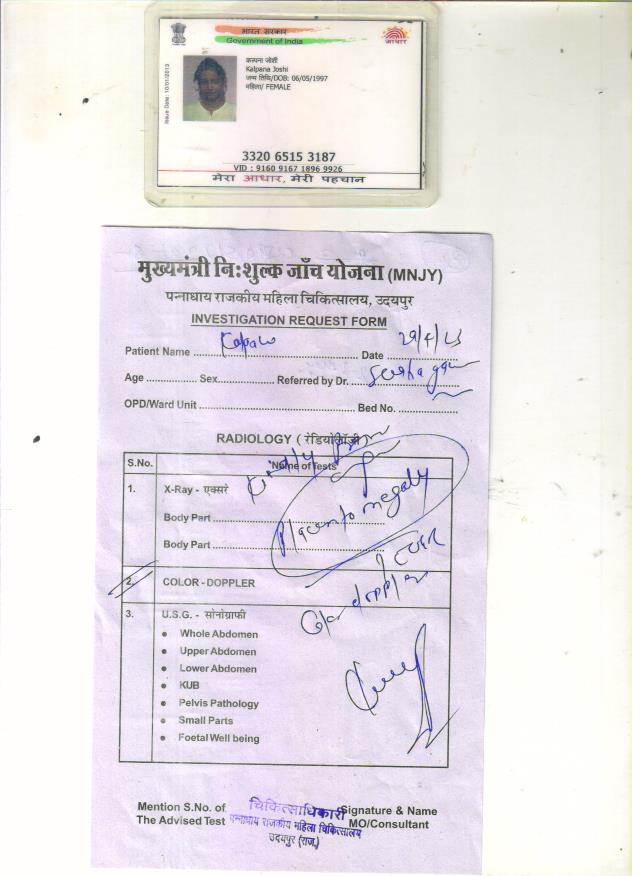 भारत सरकार
Government of India
आधार
Issue Date: 10/01/2013
कल्पना जोशी
Kalpana Joshi
जन्म तिथि/DOB: 06/05/1997
महिला/ FEMALE
3320 6515 3187
VID : 9160 9167 1896 9926
मेरा आधार, मेरी पहचान
मुख्यमंत्री निःशुल्क जाँच योजना (MNJY)
पन्नाधाय राजकीय महिला चिकित्सालय, उदयपुर
INVESTIGATION REQUEST FORM
Patient Name Date 29/4/23
Age Sex Referred by Dr.
OPD/Ward Unit Bed No.
RADIOLOGY ( रेडियोलॉजी )
S.No. Name of Tests
Kindly
1. X-Ray - एक्सरे
Placentomegaly
Body Part
Body Part
2. COLOR - DOPPLER
doppler
3. U.S.G. - सोनोग्राफी
• Whole Abdomen
• Upper Abdomen
• Lower Abdomen
• KUB
• Pelvis Pathology
• Small Parts
• Foetal Well being
Mention S.No. of चिकित्साधिकारी Signature & Name
The Advised Test पन्नाधाय राजकीय महिला चिकित्सालय MO/Consultant
उदयपुर (राज.)